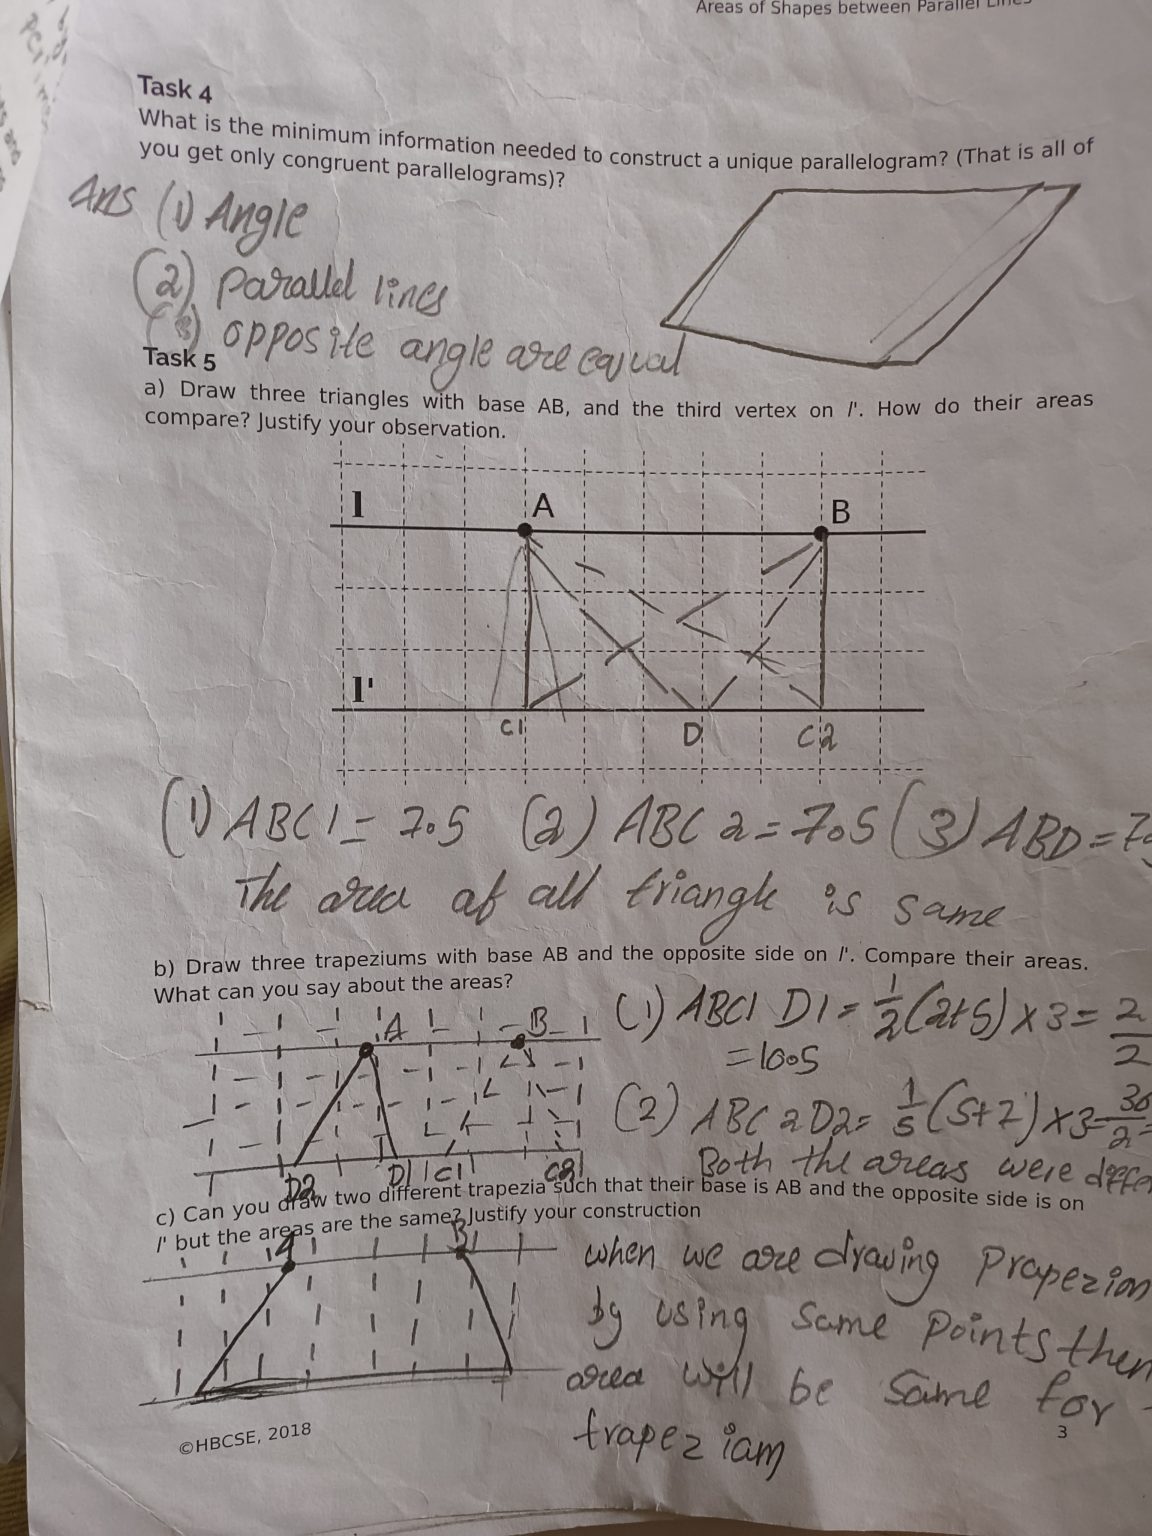 Areas of Shapes between Parallel Lines
Task 4
What is the minimum information needed to construct a unique parallelogram? (That is all of
you get only congruent parallelograms)?
Ans (1) Angle
(2) parallel lines
(3) opposite angle are equal
Task 5
a) Draw three triangles with base AB, and the third vertex on l'. How do their areas
compare? Justify your observation.
l A B
l'
C1 D C2
(1) ABC1 = 7.5 (2) ABC2 = 7.5 (3) ABD = 7
The area of all triangle is same
b) Draw three trapeziums with base AB and the opposite side on l'. Compare their areas.
What can you say about the areas?
A B
(1) ABC1 D1 = 1/2 (2+5) x 3 = 2/2
= 10.5
(2) ABC2D2 = 1/5 (5+7) x 3 = 36/2 =
Both the areas were diffe
D2 D1 C1 C2
c) Can you draw two different trapezia such that their base is AB and the opposite side is on
l' but the areas are the same? Justify your construction
A B
when we are drawing Prapezion
by using same points then
area will be same for
trapeziam
©HBCSE, 2018
3